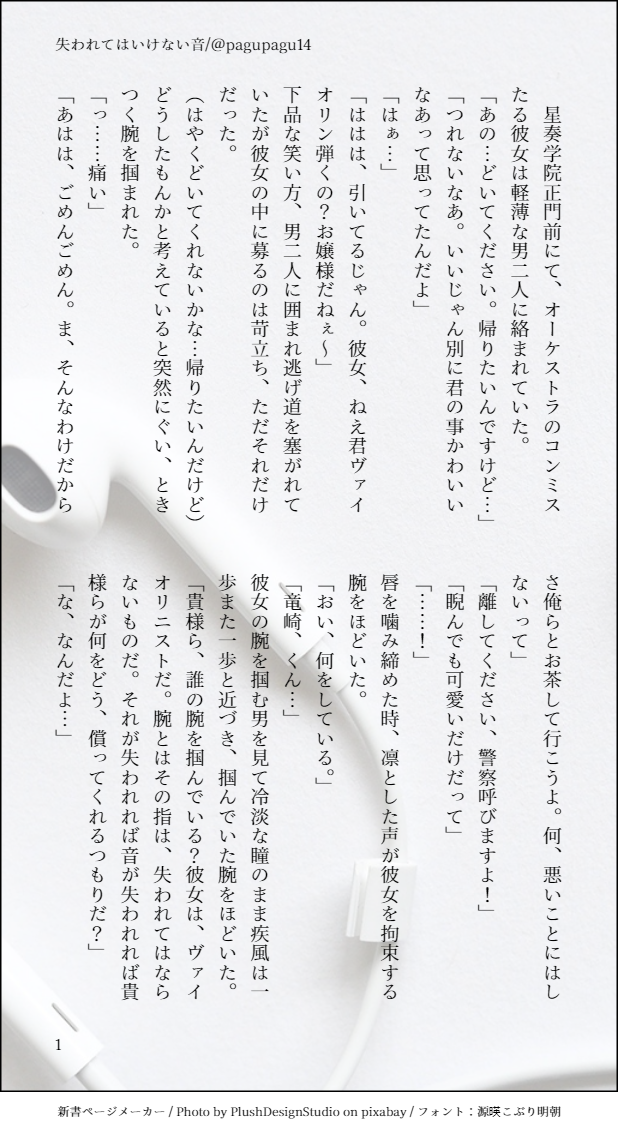 失われてはいけない音/@pagupagu14
　星奏学院正門前にて、オーケストラのコンミス
たる彼女は軽薄な男二人に絡まれていた。
「あの…どいてください。帰りたいんですけど…」
「つれないなあ。いいじゃん別に君の事かわいい
なあって思ってたんだよ」
「はぁ…」
「ははは、引いてるじゃん。彼女、ねえ君ヴァイ
オリン弾くの？お嬢様だねぇ〜」
下品な笑い方、男二人に囲まれ逃げ道を塞がれて
いたが彼女の中に募るのは苛立ち、ただそれだけ
だった。
（はやくどいてくれないかな…帰りたいんだけど）
どうしたもんかと考えていると突然にぐい、とき
つく腕を掴まれた。
「っ……痛い」
「あはは、ごめんごめん。ま、そんなわけだから
さ俺らとお茶して行こうよ。何、悪いことにはし
ないって」
「離してください、警察呼びますよ！」
「睨んでも可愛いだけだって」
「……！」
唇を噛み締めた時、凛とした声が彼女を拘束する
腕をほどいた。
「おい、何をしている。」
「竜崎、くん…」
彼女の腕を掴む男を見て冷淡な瞳のまま疾風は一
歩また一歩と近づき、掴んでいた腕をほどいた。
「貴様ら、誰の腕を掴んでいる？彼女は、ヴァイ
オリニストだ。腕とはその指は、失われてはなら
ないものだ。それが失われれば音が失われれば貴
様らが何をどう、償ってくれるつもりだ？」
「な、なんだよ…」
1
新書ページメーカー / Photo by PlushDesignStudio on pixabay / フォント：源暎こぶり明朝